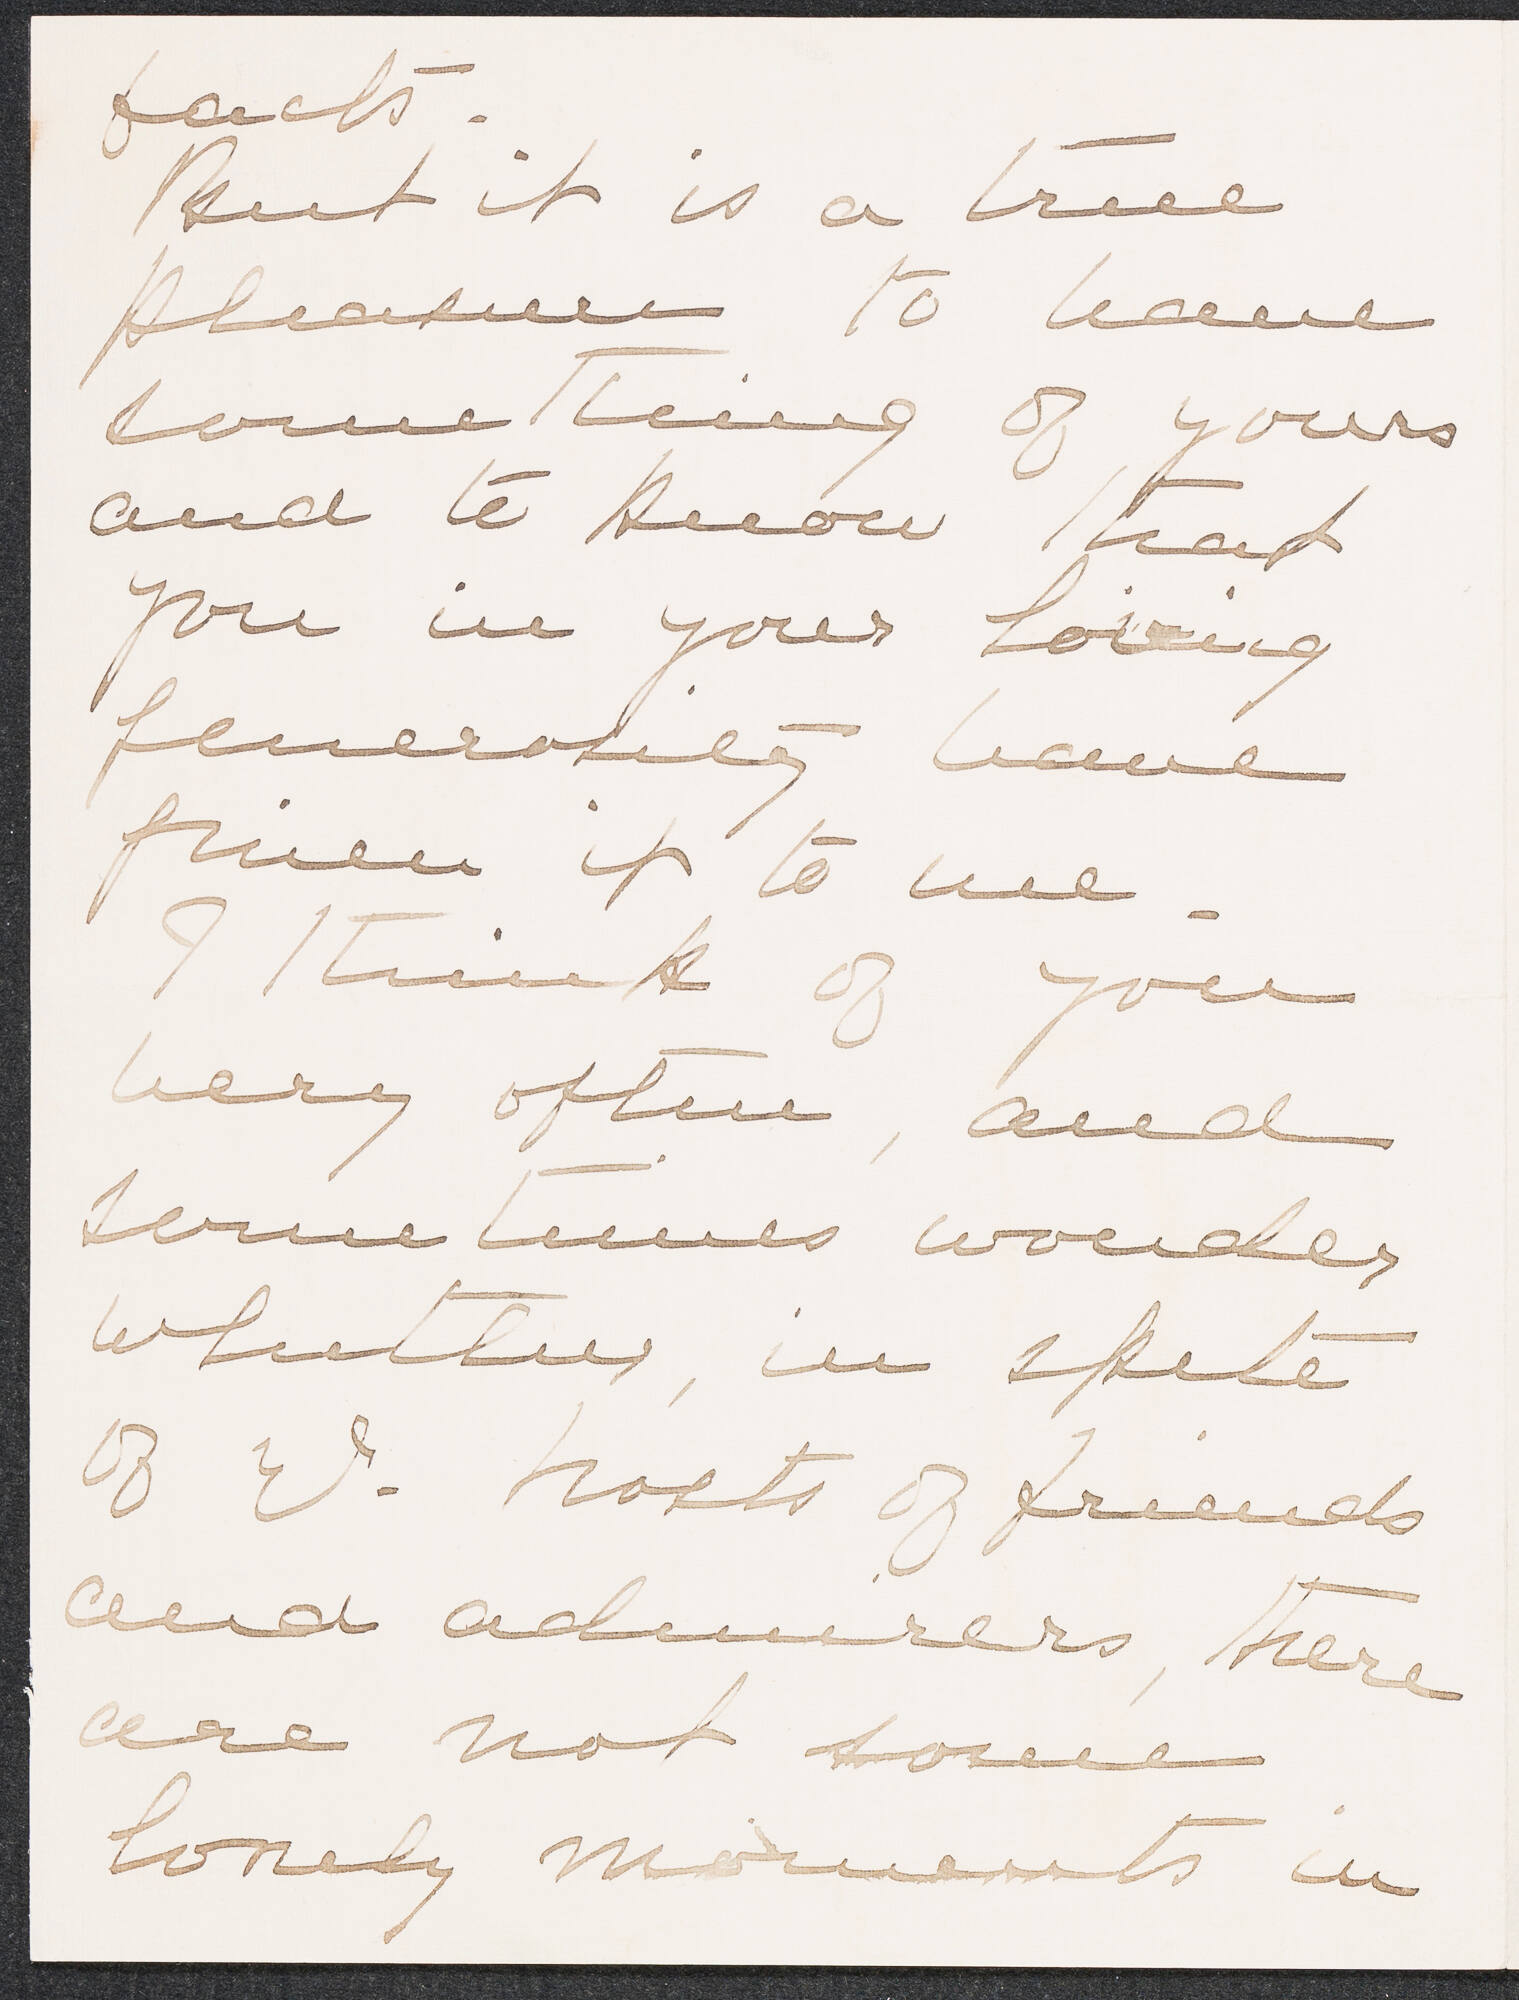 facts.
But it is a true
pleasure to have
something of yours
and to know that
you in your loving
generosity have
given it to me.
I think of you
very often, and
sometimes wonder
whether, in spite
of yr. hosts of friends
and admirers, there
are not some
lonely moments in